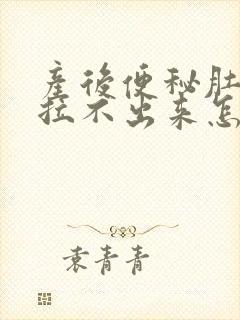 産後便秘肚
拉不出来怎
袁青青